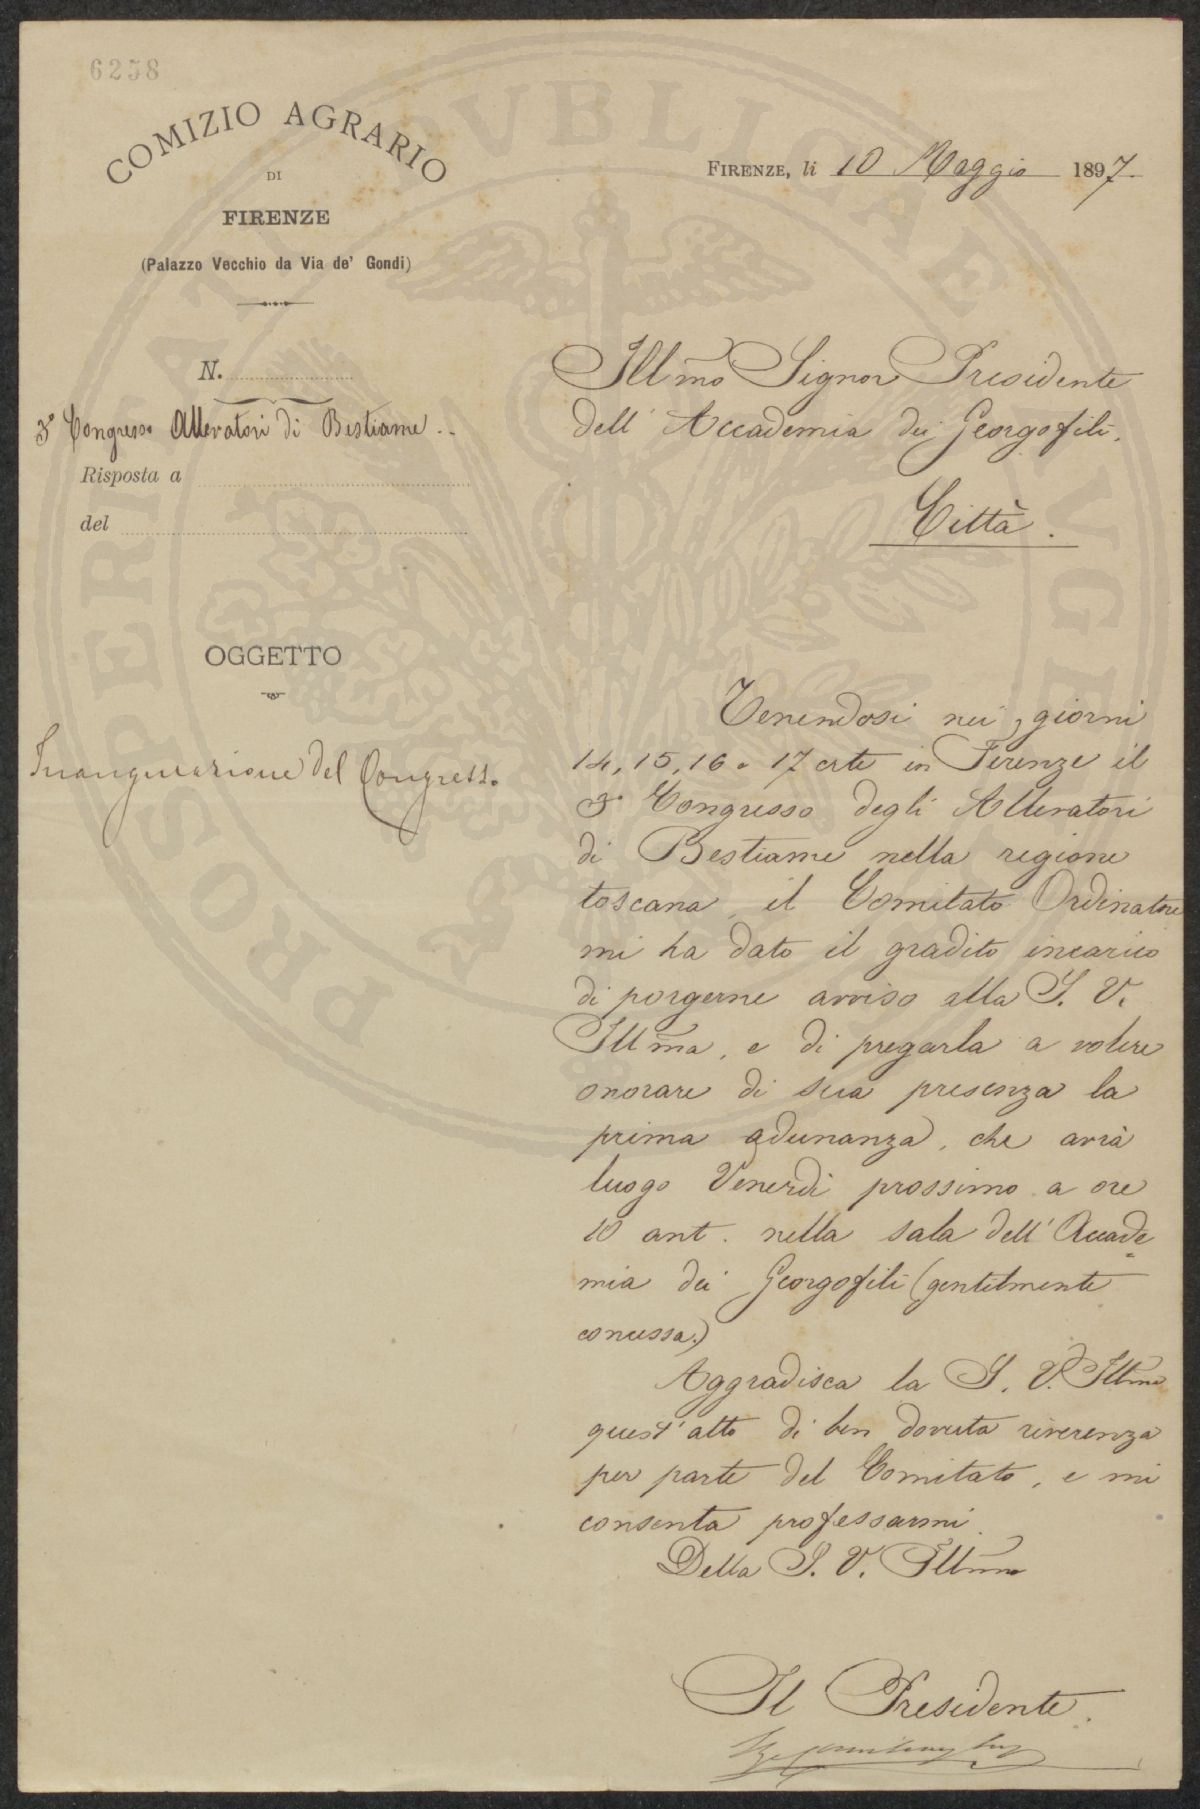 6258
COMIZIO AGRARIO
DI
FIRENZE
(Palazzo Vecchio da Via de' Gondi)
FIRENZE, li 10 Maggio 1897.
N.
3° Congresso Allevatori di Bestiame..
Risposta a
del
OGGETTO
Inaugurazione del Congresso
Illmo Signor Presidente
dell' Accademia dei Georgofili.
Città.
Tenendosi nei giorni
14, 15, 16 e 17 crte in Firenze il
3° Congresso degli Allevatori
di Bestiame nella regione
toscana, il Comitato Ordinatore
mi ha dato il gradito incarico
di porgerne avviso alla S. V.
Illma, e di pregarla a volere
onorare di sua presenza la
prima adunanza, che avrà
luogo Venerdì prossimo a ore
10 ant. nella sala dell' Accade=
mia dei Georgofili (gentilmente
concessa.)
Aggradisca la S. V. Illma
quest' atto di ben dovuta riverenza
per parte del Comitato, e mi
consenta professarmi
Della S. V. Illma
Il Presidente.
PROSPERITATI PVBLICAE AVGENDAE